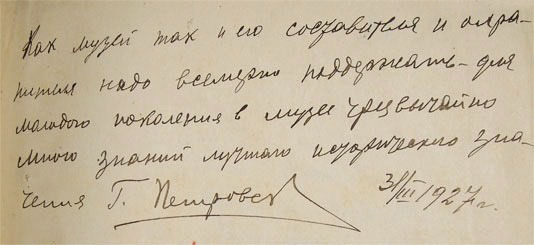 Как музей так и его составителя и охра-
нителя надо всемерно поддержать - для
молодого поколения в музее чрезвычайно
много знаний лучшаго исторического зна-
чения Г. Петровск
31/III 1927 г.